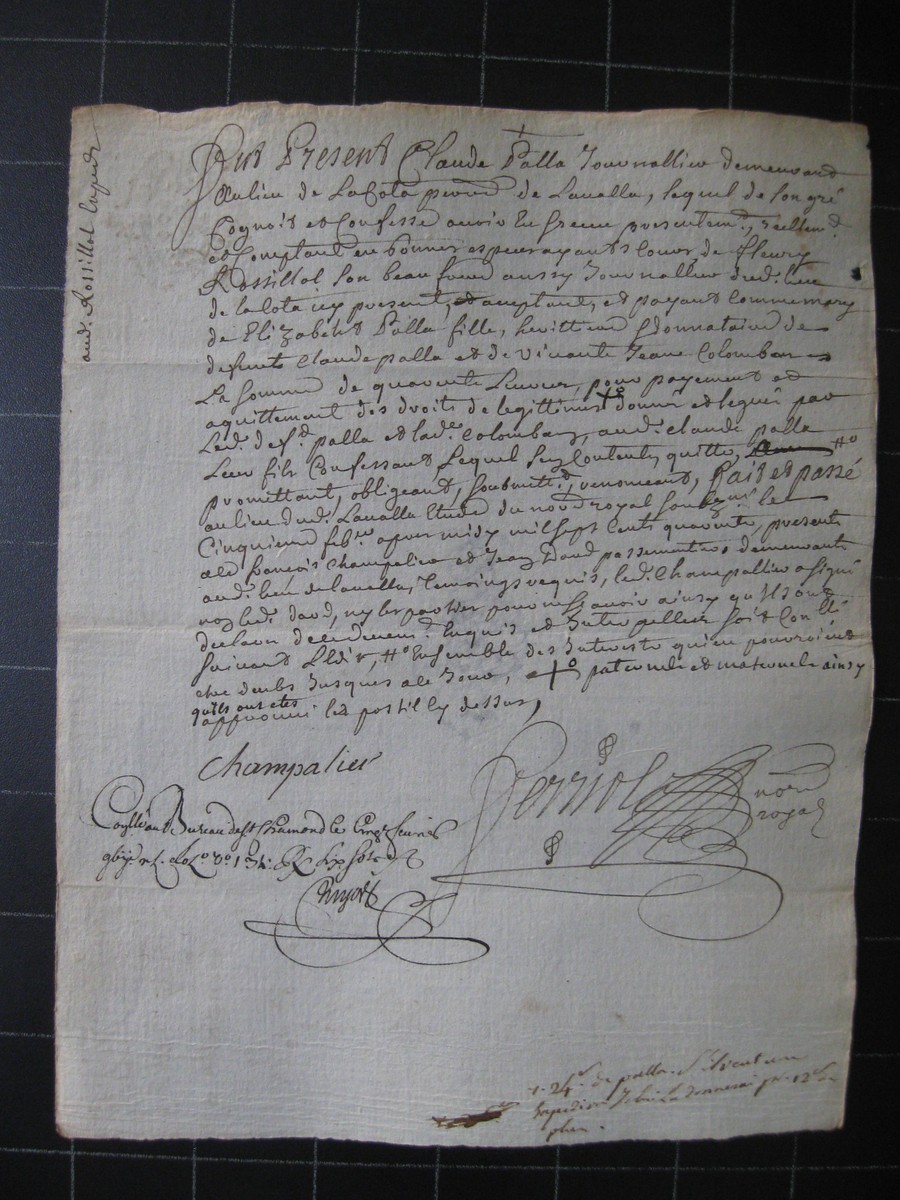 aud. Rossillol Expedié
Fut Present Claude Palla Journallier demeurant
Au lieu de La Cota parroisse de Lavalla, lequel de son gré
Cognoit et Confesse avoir Eu Receu presentem.t, reellem.t
et Comptant en bonnes especes ayants cours, de fleury
Rossillol son beau frere aussy Journallier dud. lieu
de la Cota icy present, et aceptant, et payant Comme mary
de Elizabeth Palla fille, herittiere donnataire de
defunt Claude palla et de vivante Jeane Colomban
La somme de quarante Livres, pour payement et
aquittement des droits de legittimes donnés et legués par
Led. def.t palla et lad.e Colomban, aud. claude palla
Leur fils Confessant Lequel Content, quitte,
promittant, obligeant, soubmitt.t, renonceant, fait et passé
au lieu dud. Lavalla Etude du not.re royal soubz.né le
Cinquieme feb.er apres midy mil sept cent quarante, presents
champalier et Jean david passementiers demeurants
aud. lieu de lavalla, temoings requis, led. Champallier a signé
non led. david, ny les parties pour ne sçavoir ainsy qu'ils ont
declaré Enquis et Interpellés soit Con.llé
suivant L'Edit, Ensemble des Interests qu'en pouvroient
etre deubs Jusques a ce Jour, paternelle et maternelle ainsy
qu'ils ont etes
approuvé les postil cy dessus,
Champalier
Ferriol not.re
royal
Con.llé au Bureau de St Chamond le Cinq.e feurier
1740 R. six sols
24 de palla
12
plus.